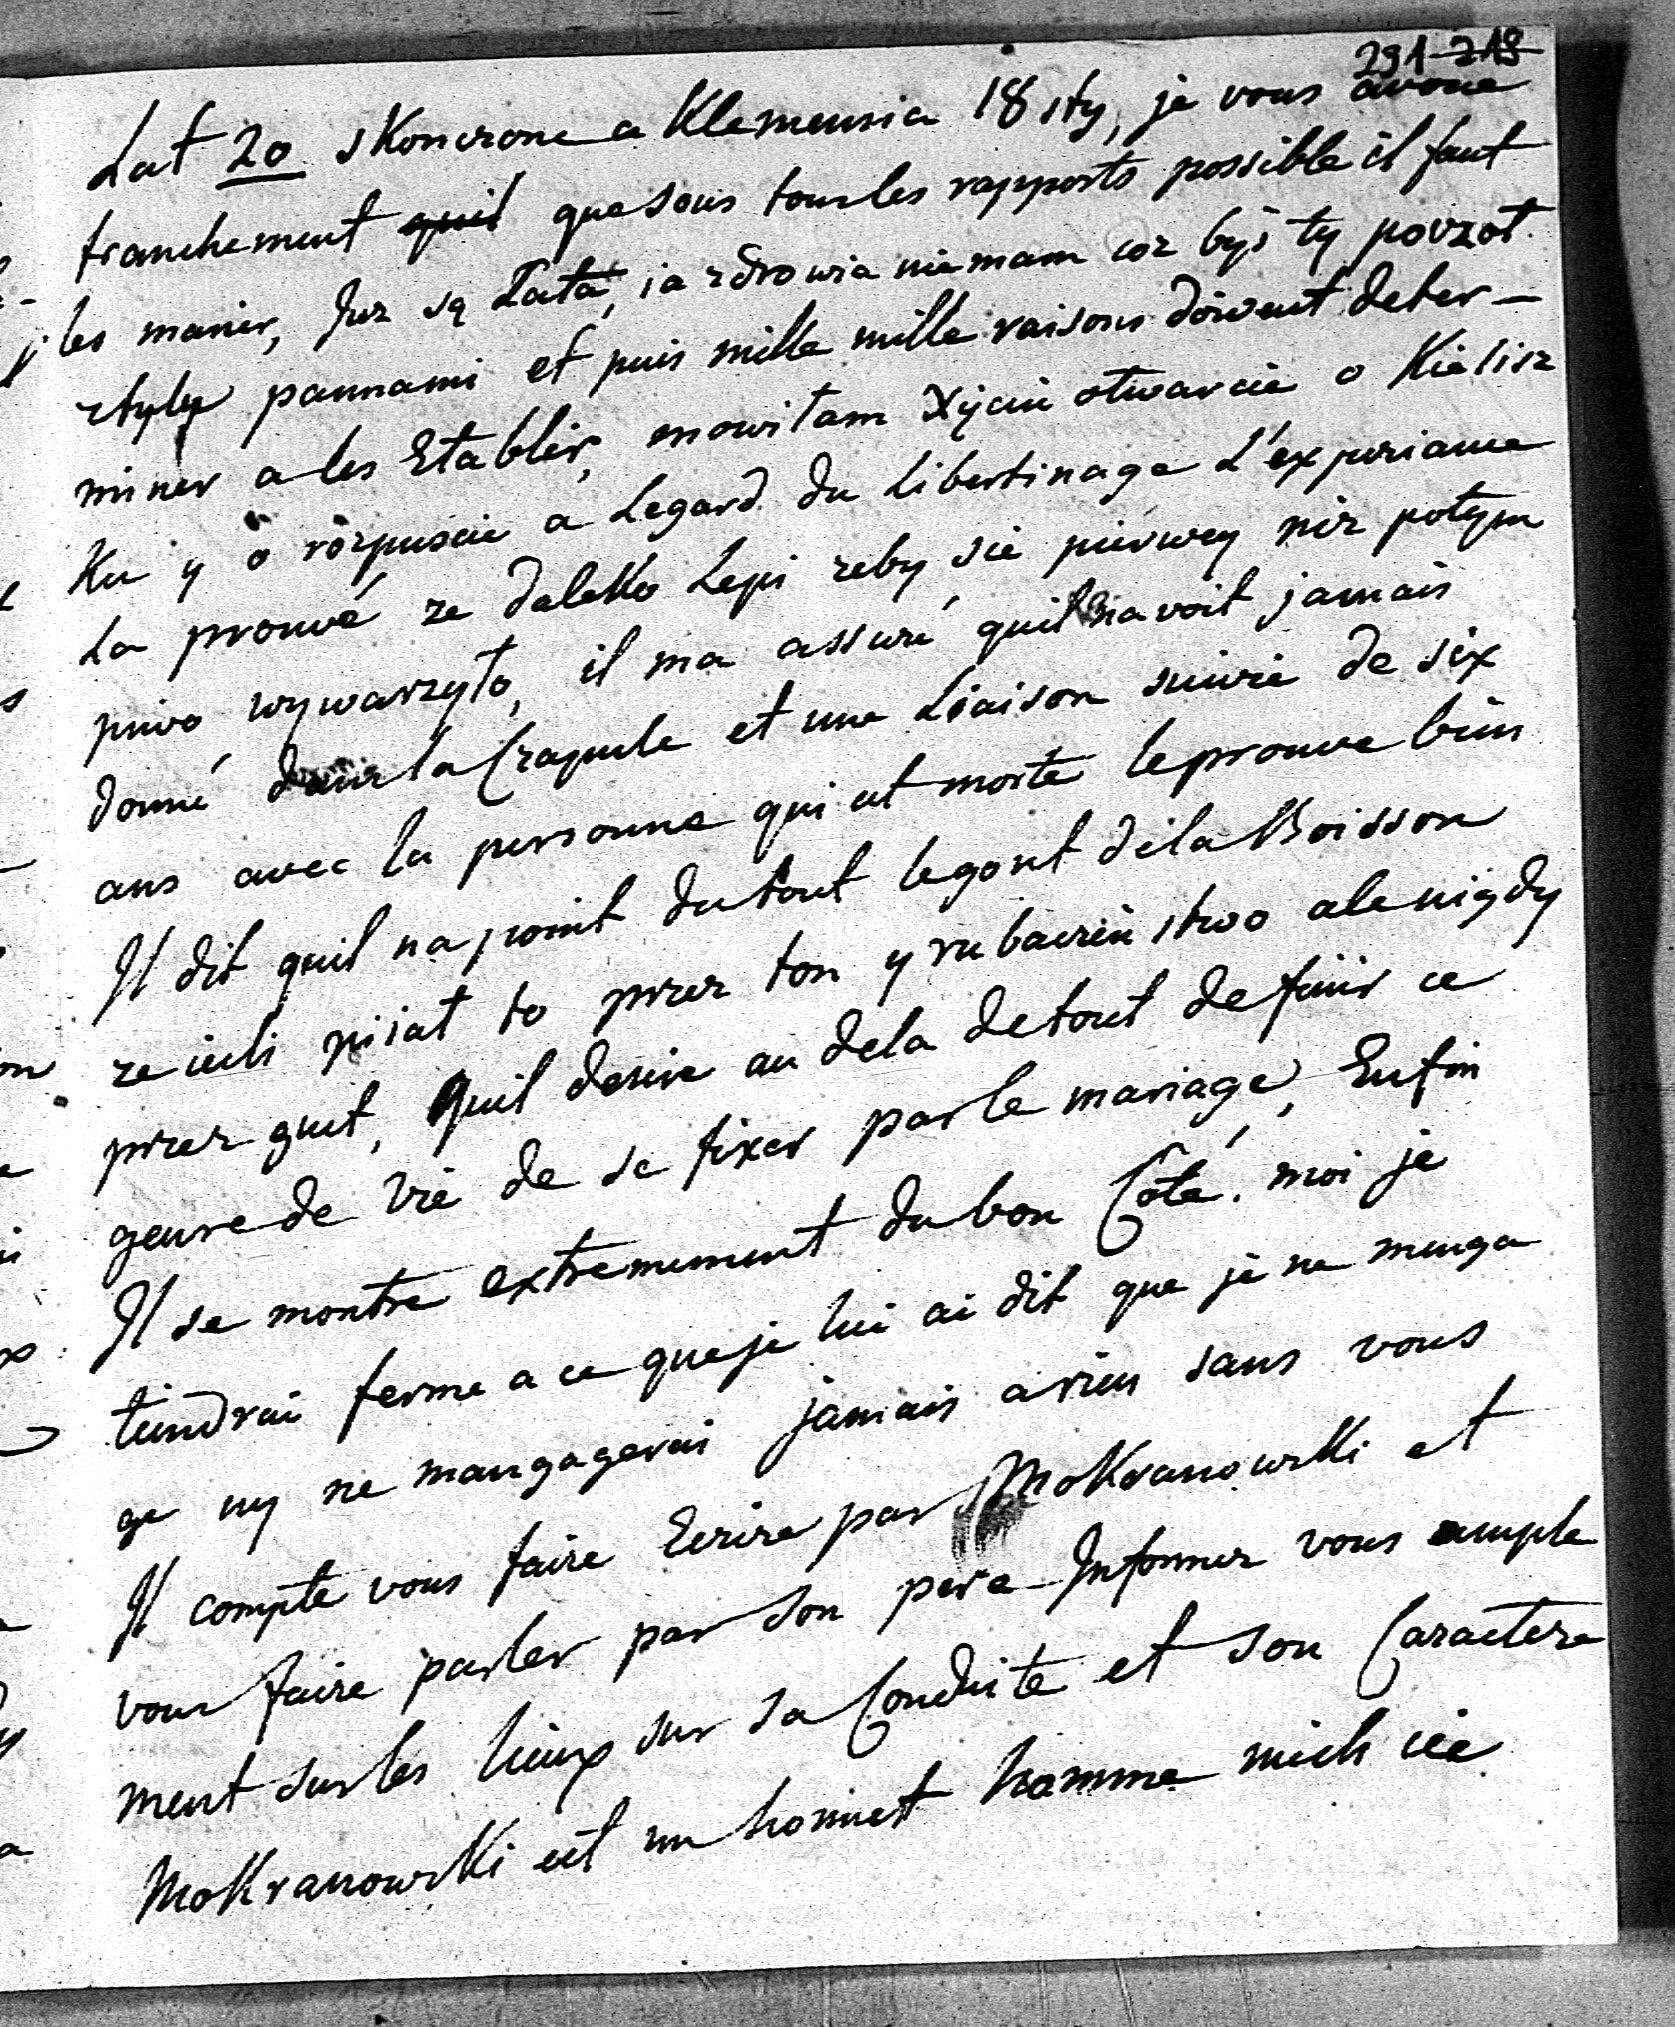 291 219
Lat 20 skonczone a Klemensia 18sty, je vous avoue
franchement quil que sous tous les rapports possible il faut
les marier, Juz są Lata, ia zdrowia niemam coz byś ty począł
ztyly pannami et puis mille mille raisons doivent deter-
miner a les Etablir, mowiłam Xjciu otwarcie o Kielisz
Ku y o rozpuscie a Legard du Libertinage L'experiance
La prouvé ze daleko Lepi zeby sie pierwey niz potym
piwo wywarzyło, il ma assuré quil navoit jamais
donné dans la Crapule et une Liaison suivie de six
ans avec la personne qui est morte le prouve bien
Il dit quil na point du tout le gout de la Boisson
ze iesli pijał to przez ton y rubaczeństwo ale nigdy
przez gust, Quil desire au dela de tout de finir ce
genre de vie de se fixer par le mariage, Enfin
Il se montre extremement du bon Coté. moi je
tiendrai ferme a ce que je lui ai dit que je ne menga
ge ny ne mangagerai jamais a rien sans vous
Il compte vous faire Ecrire par Mokranowski et
vous faire parler par son pere Informez vous ample
ment sur les lieux sur sa Conduite et son Caractere
Mokranowski est un honnet homme niech cie